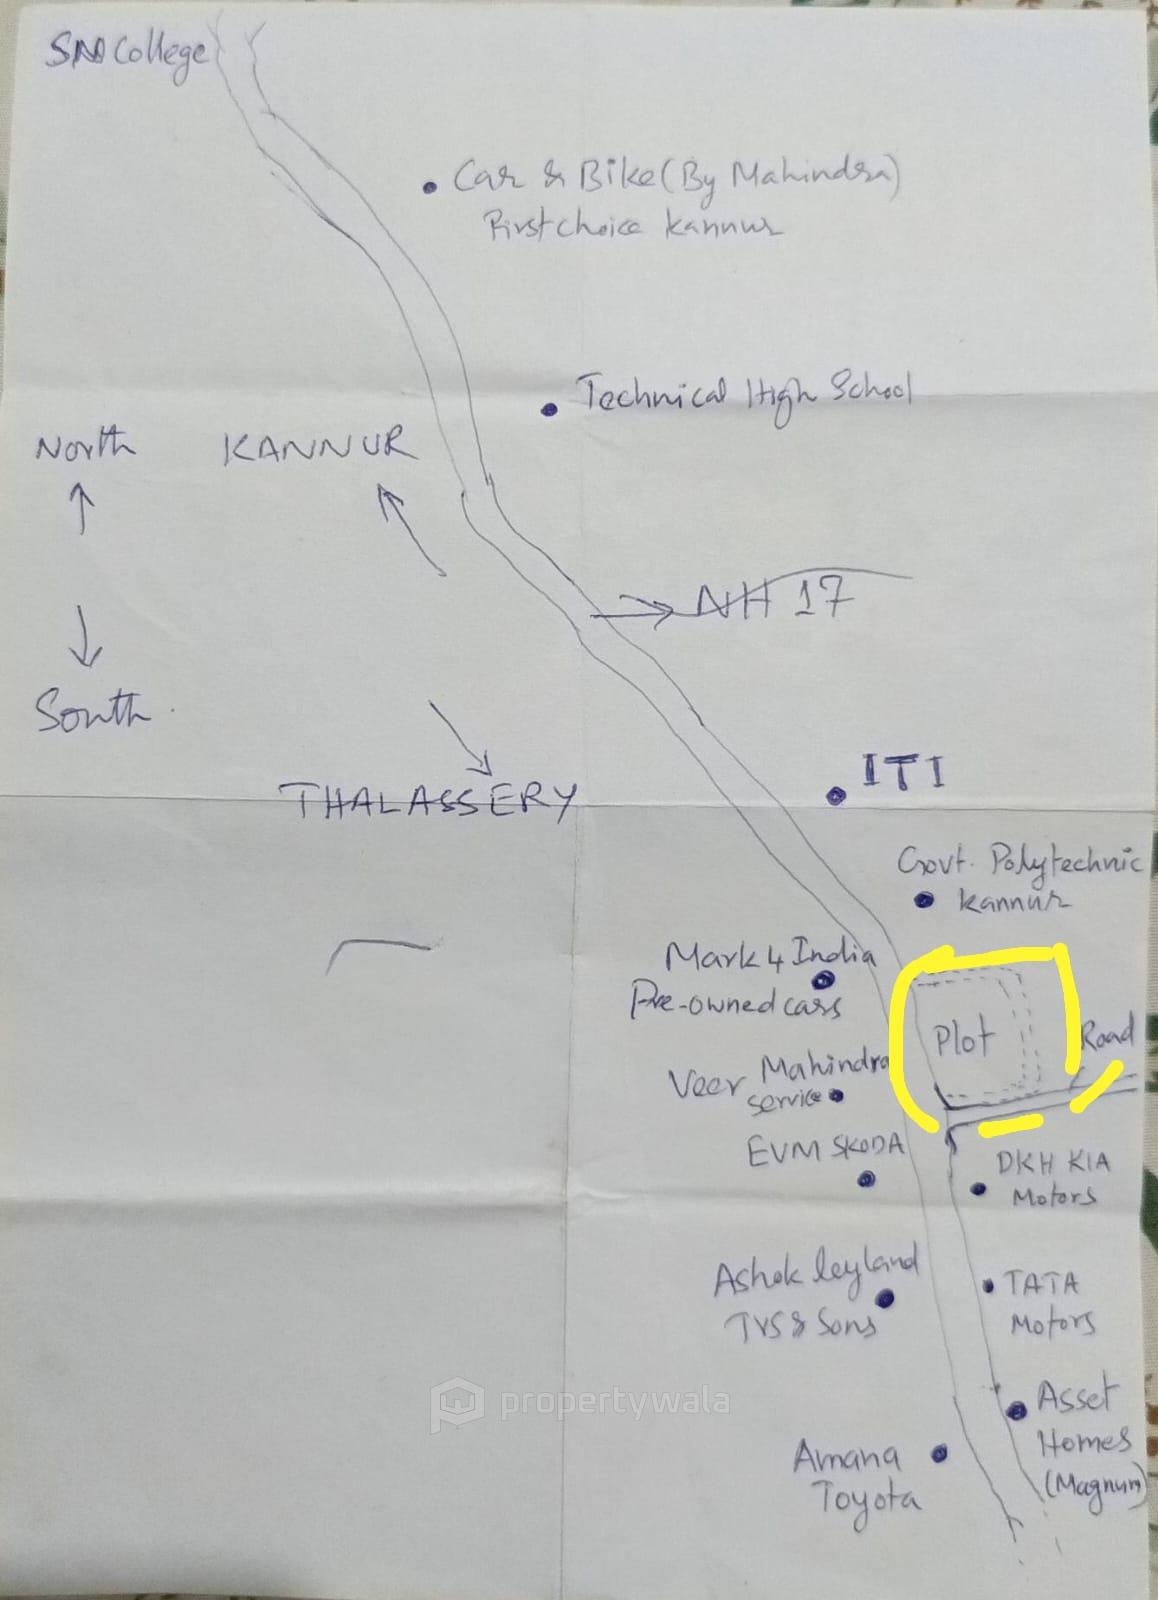 SN College
Car & Bike (By Mahindra)
First choice Kannur
Technical High School
North
KANNUR
NH 17
South
THALASSERY
ITI
Govt. Polytechnic
Kannur
Mark 4 India
Pre-owned cars
Plot
Road
Veer Mahindra
service
EVM SKODA
DKH KIA
Motors
Ashok leyland
TVS & Sons
TATA
Motors
propertywala
Asset
Homes
(Magnum)
Amana
Toyota